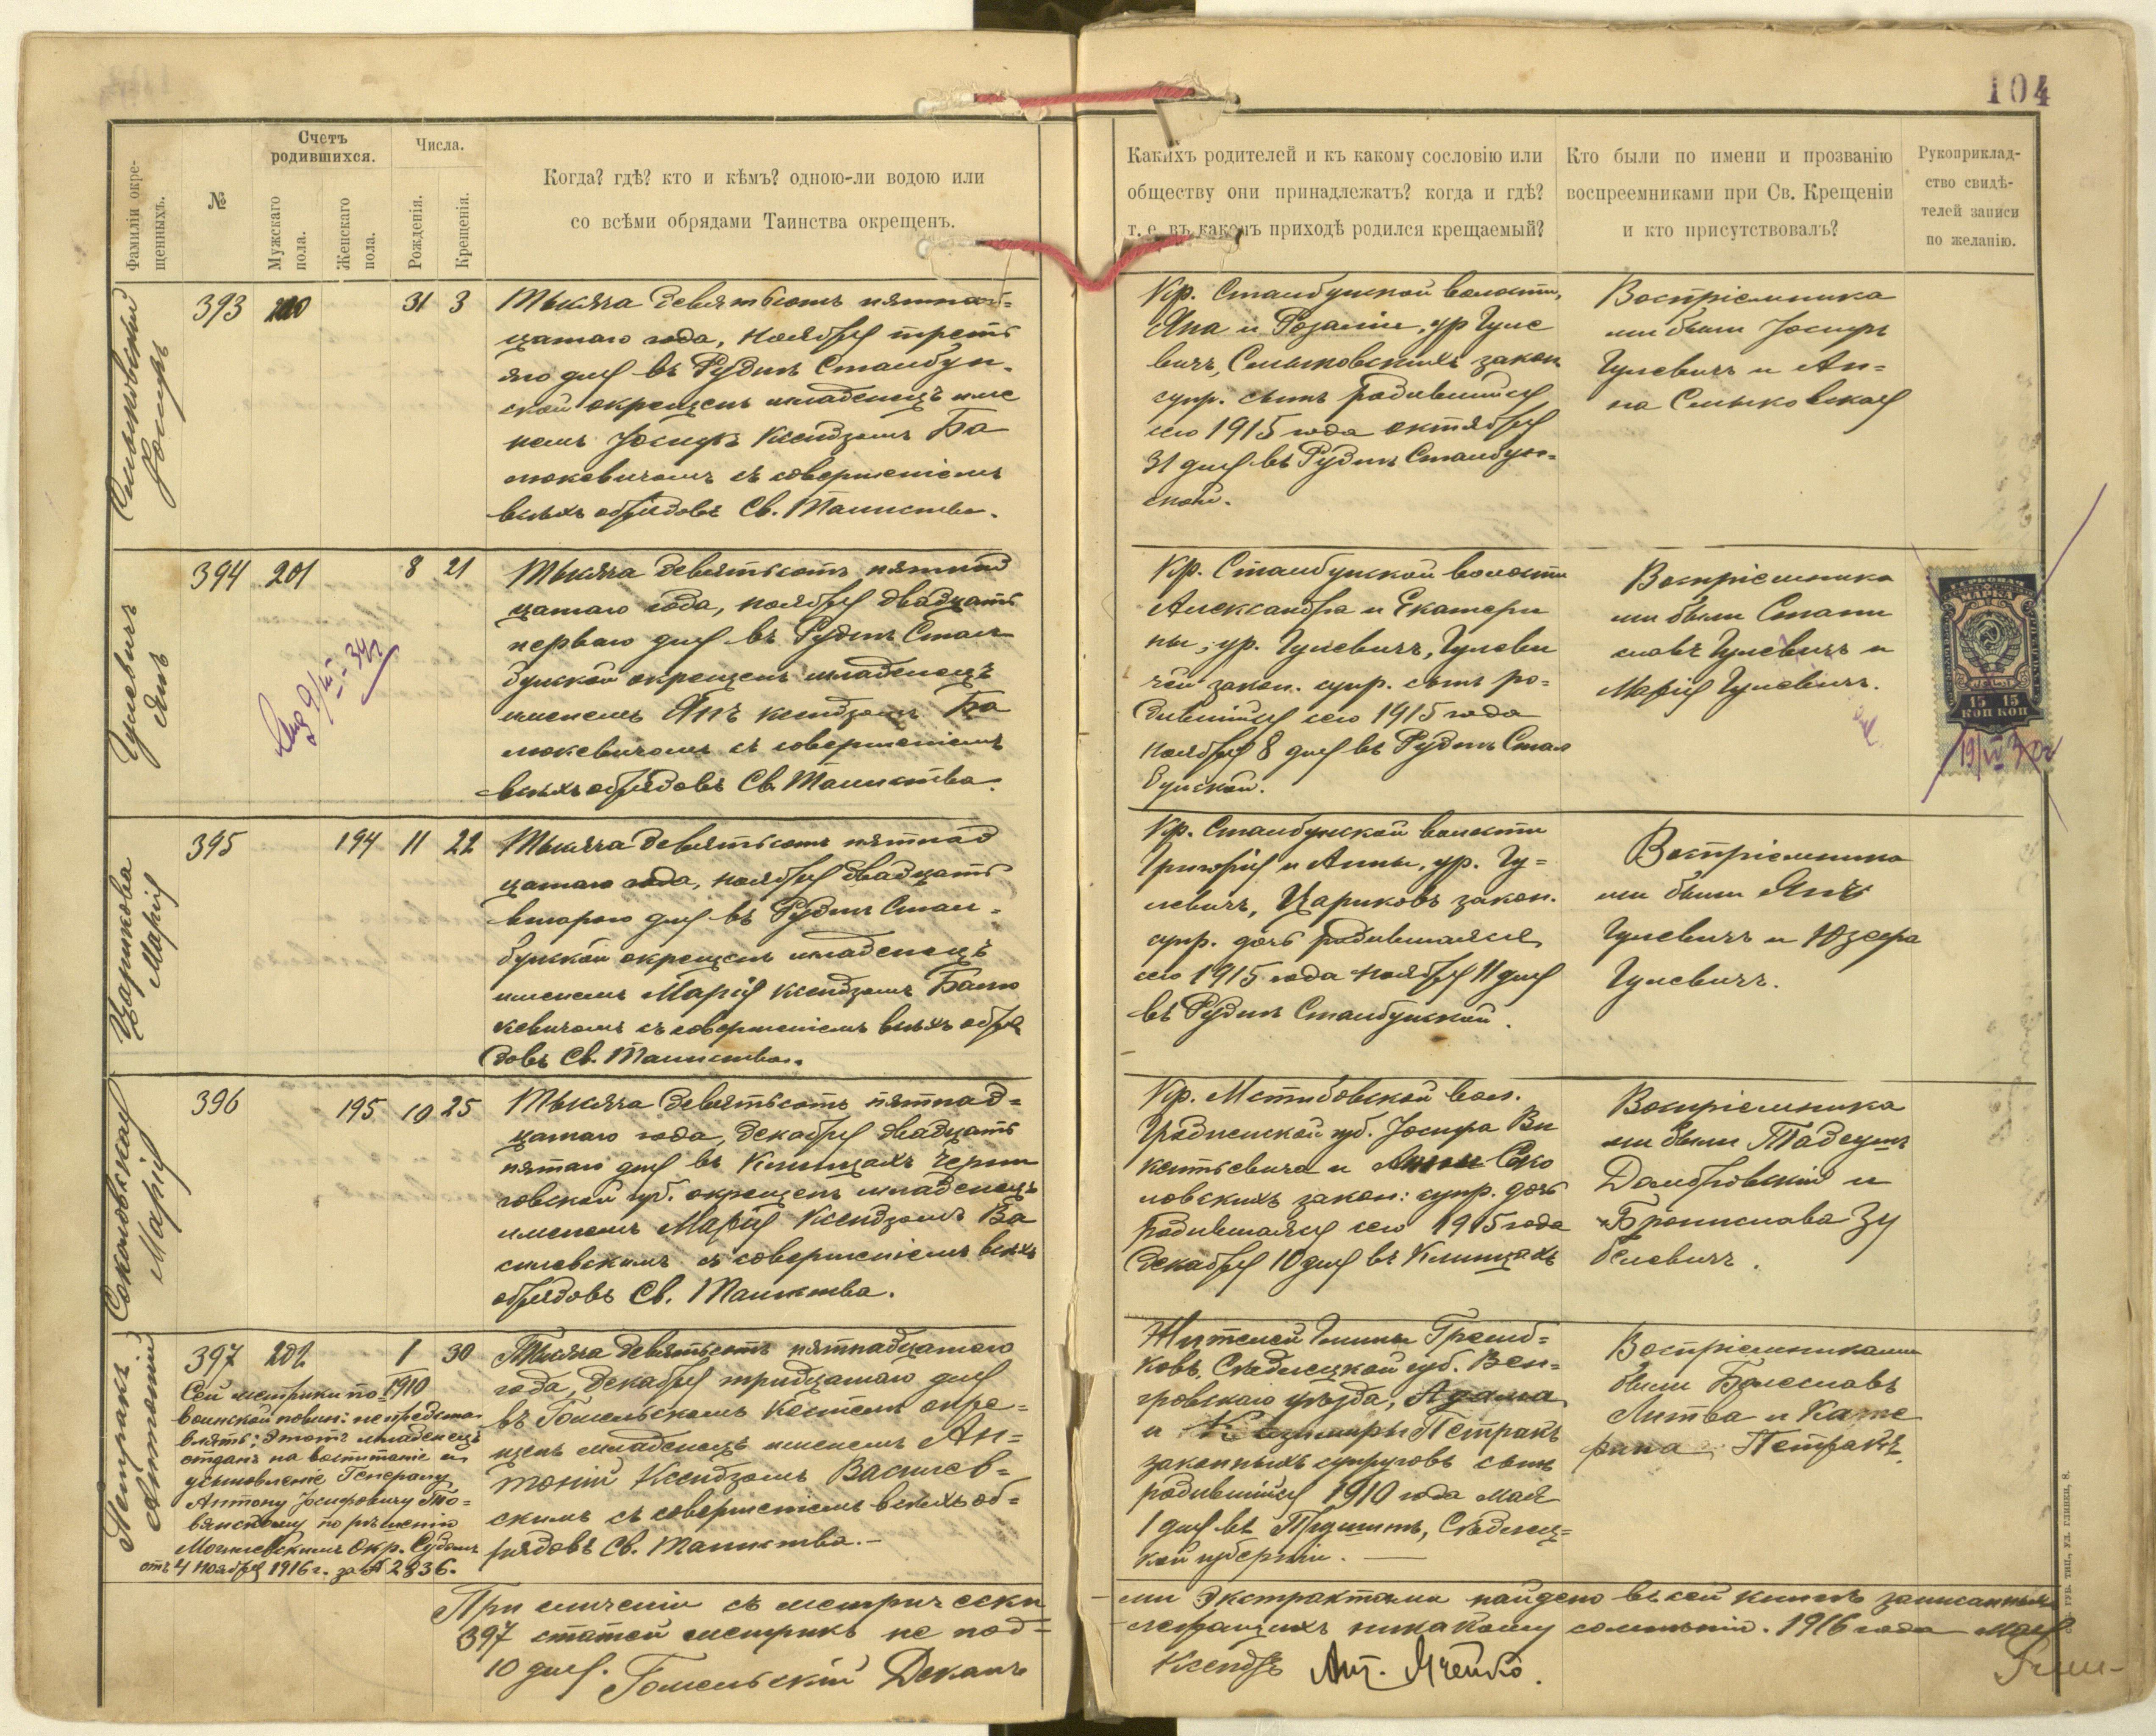 104
Фамиліи окре-
щенныхъ.
№
Счетъ
родившихся.
Мужскаго
пола.
Женскаго
пола.
Числа.
Рожденія.
Крещенія.
Когда? гдѣ? кто и кѣмъ? одною-ли водою или
со всѣми обрядами Таинства окрещенъ.
Какихъ родителей и къ какому сословію или
обществу они принадлежатъ? когда и гдѣ?
т. е. въ какомъ приходѣ родился крещаемый?
Кто были по имени и прозванію
воспреемниками при Св. Крещеніи
и кто присутствовалъ?
Рукоприклад-
ство свидѣ-
телей записи
по желанію.
Смыковскій
Іосифъ
393 200 31 3
Тысяча девятьсотъ пятнад-
цатаго года, ноября треть
яго дня въ Руднѣ Столбун-
ской окрещенъ младенецъ име
немъ Іосифъ Ксендзомъ Ба
люкевичомъ съ совершеніемъ
всѣхъ обрядовъ Св. Таинства.
Кр. Столбунской волости,
Яна и Розаліи, ур Гуле
вичъ, Смыковскихъ закон.
супр. сынъ родившійся
сего 1915 года октября
31 дня въ Руднѣ Столбун-
ской.
Воспріемника
ми были Іосифъ
Гулевичъ и Ан-
на Смыковская
Гулевичъ
Янъ
394 201 8 21
Тысяча девятьсотъ пятнад
цатаго года, ноября двадцать
перваго дня въ Руднѣ Стол
бунской окрещенъ младенецъ
именемъ Янъ ксендзомъ Ба
люкевичомъ съ совершеніемъ
всѣхъ обрядовъ Св. Таинства.
Кр. Столбунской волости
Александра и Екатери
ны, ур. Гулевичъ, Гулеви
чей закон. супр. сынъ ро-
дившійся сего 1915 года
ноября 8 дня въ Руднѣ Стол
бунской.
Воспріемника
ми были Стани
славъ Гулевичъ и
Марія Гулевичъ.
15 15
КОП КОП
Царикова
Марія
395 194 11 22
Тысяча девятьсотъ пятнад
цатаго года, ноября двадцать
второго дня въ Руднѣ Стол-
бунской окрещенъ младенецъ
именемъ Марія ксендзомъ Балю
кевичомъ съ совершеніемъ всѣхъ обря
довъ Св. Таинства.
Кр. Столбунской волости
Григорія и Анны, ур. Гу-
левичъ, Цариковъ закон.
супр. дочь родившаяся
сего 1915 года ноября 11 дня
въ Руднѣ Столбунской.
Воспріемника
ми были Янъ
Гулевичъ и Юзефа
Гулевичъ.
Соколовская
Марія
396 195 10 25
Тысяча девятьсотъ пятнад-
цатаго года, декабря двадцать
пятаго дня въ Клинцахъ Черни
говской губ. окрещенъ младенецъ
именемъ Марія Ксендзомъ Ва
силевскимъ съ совершеніемъ всѣхъ
обрядовъ Св. Таинства.
Кр. Мстибовской вол.
Гродненской губ. Іосифа Ви
кентьевича и Анны Соко
ловскихъ закон: супр. дочь
родившаяся сего 1915 года
декабря 10 дня въ Клинцахъ
Воспріемника
ми были Тадеушъ
Домбровскій и
Бронислава Зу
белевичъ.
Петракъ
Антоній
397 202 1 30
1910
Сей метрики по
воинской повин: не представ
влять; Этотъ младенецъ
отданъ на воспитаніе и
усыновленіе Генералу
Антону Іосифовичу То-
вянскому по рѣшенію
Могилевскимъ Окр. Судомъ
отъ 4 ноября 1916 г. за № 2836.
Тысяча девятьсотъ пятнадцатаго
года, декабря тридцатаго дня
въ Гомельскомъ Костелѣ окре-
щенъ младенецъ именемъ Ан-
тоній Ксендзомъ Василев-
скимъ съ совершеніемъ всѣхъ об-
рядовъ Св. Таинства.-
Жителей Гмины Гремб-
ковъ, Сѣдлецкой губ. Вен-
гровскаго уѣзда, Адама
и Казимиры Петракъ
законныхъ супруговъ сынъ
родившійся 1910 года мая
1 дня въ Сѣдлец-
кой губерніи.
Воспріемниками
были Болеславъ
Литва и Кате
рина Петракъ.
При сличеніи съ метрически
ми Экстрактами найдено въ сей книгѣ записанныхъ
397 статей метрикъ не под-
лежащихъ никакому сомнѣнію. 1916 года мая
10 дня. Гомельскій Деканъ
Ксендзъ Ант. Ячейко.
ГУБ. ТИП., УЛ. ГЛИНКИ, 8.